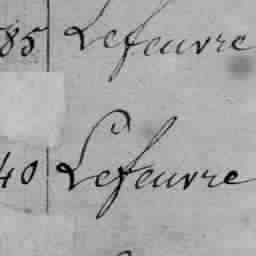 85 Lefeuvre
40 Lefeuvre